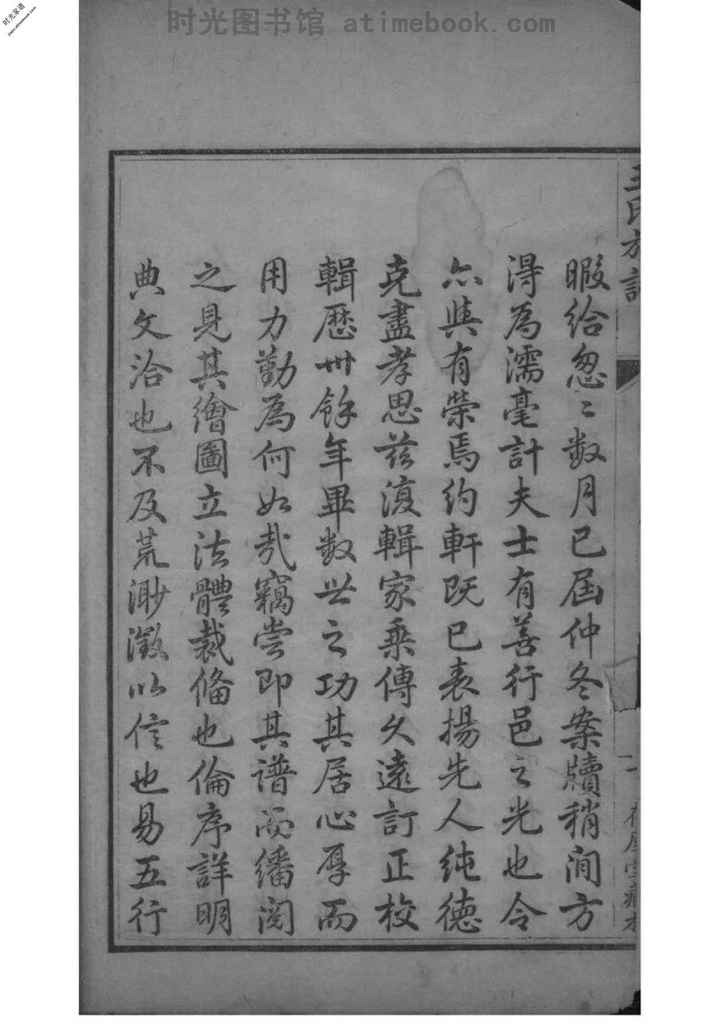 时光图书馆 atimebook.com
时光家谱
www.atimebook.com
王氏族譜
暇給忽〻数月已屆仲冬案牘稍澗方
得為濡毫計夫士有善行邑之光也令
亦與有榮焉約軒既已表揚先人純德
克盡孝思兹復輯家乘傳久遠訂正校
輯歷卅餘年畢数世之功其居心厚而
用力勤為何如哉竊嘗即其譜而繙閱
之見其繪圖立法體裁俻也倫序詳明
典文洽也不及荒渺徵以信也易五行